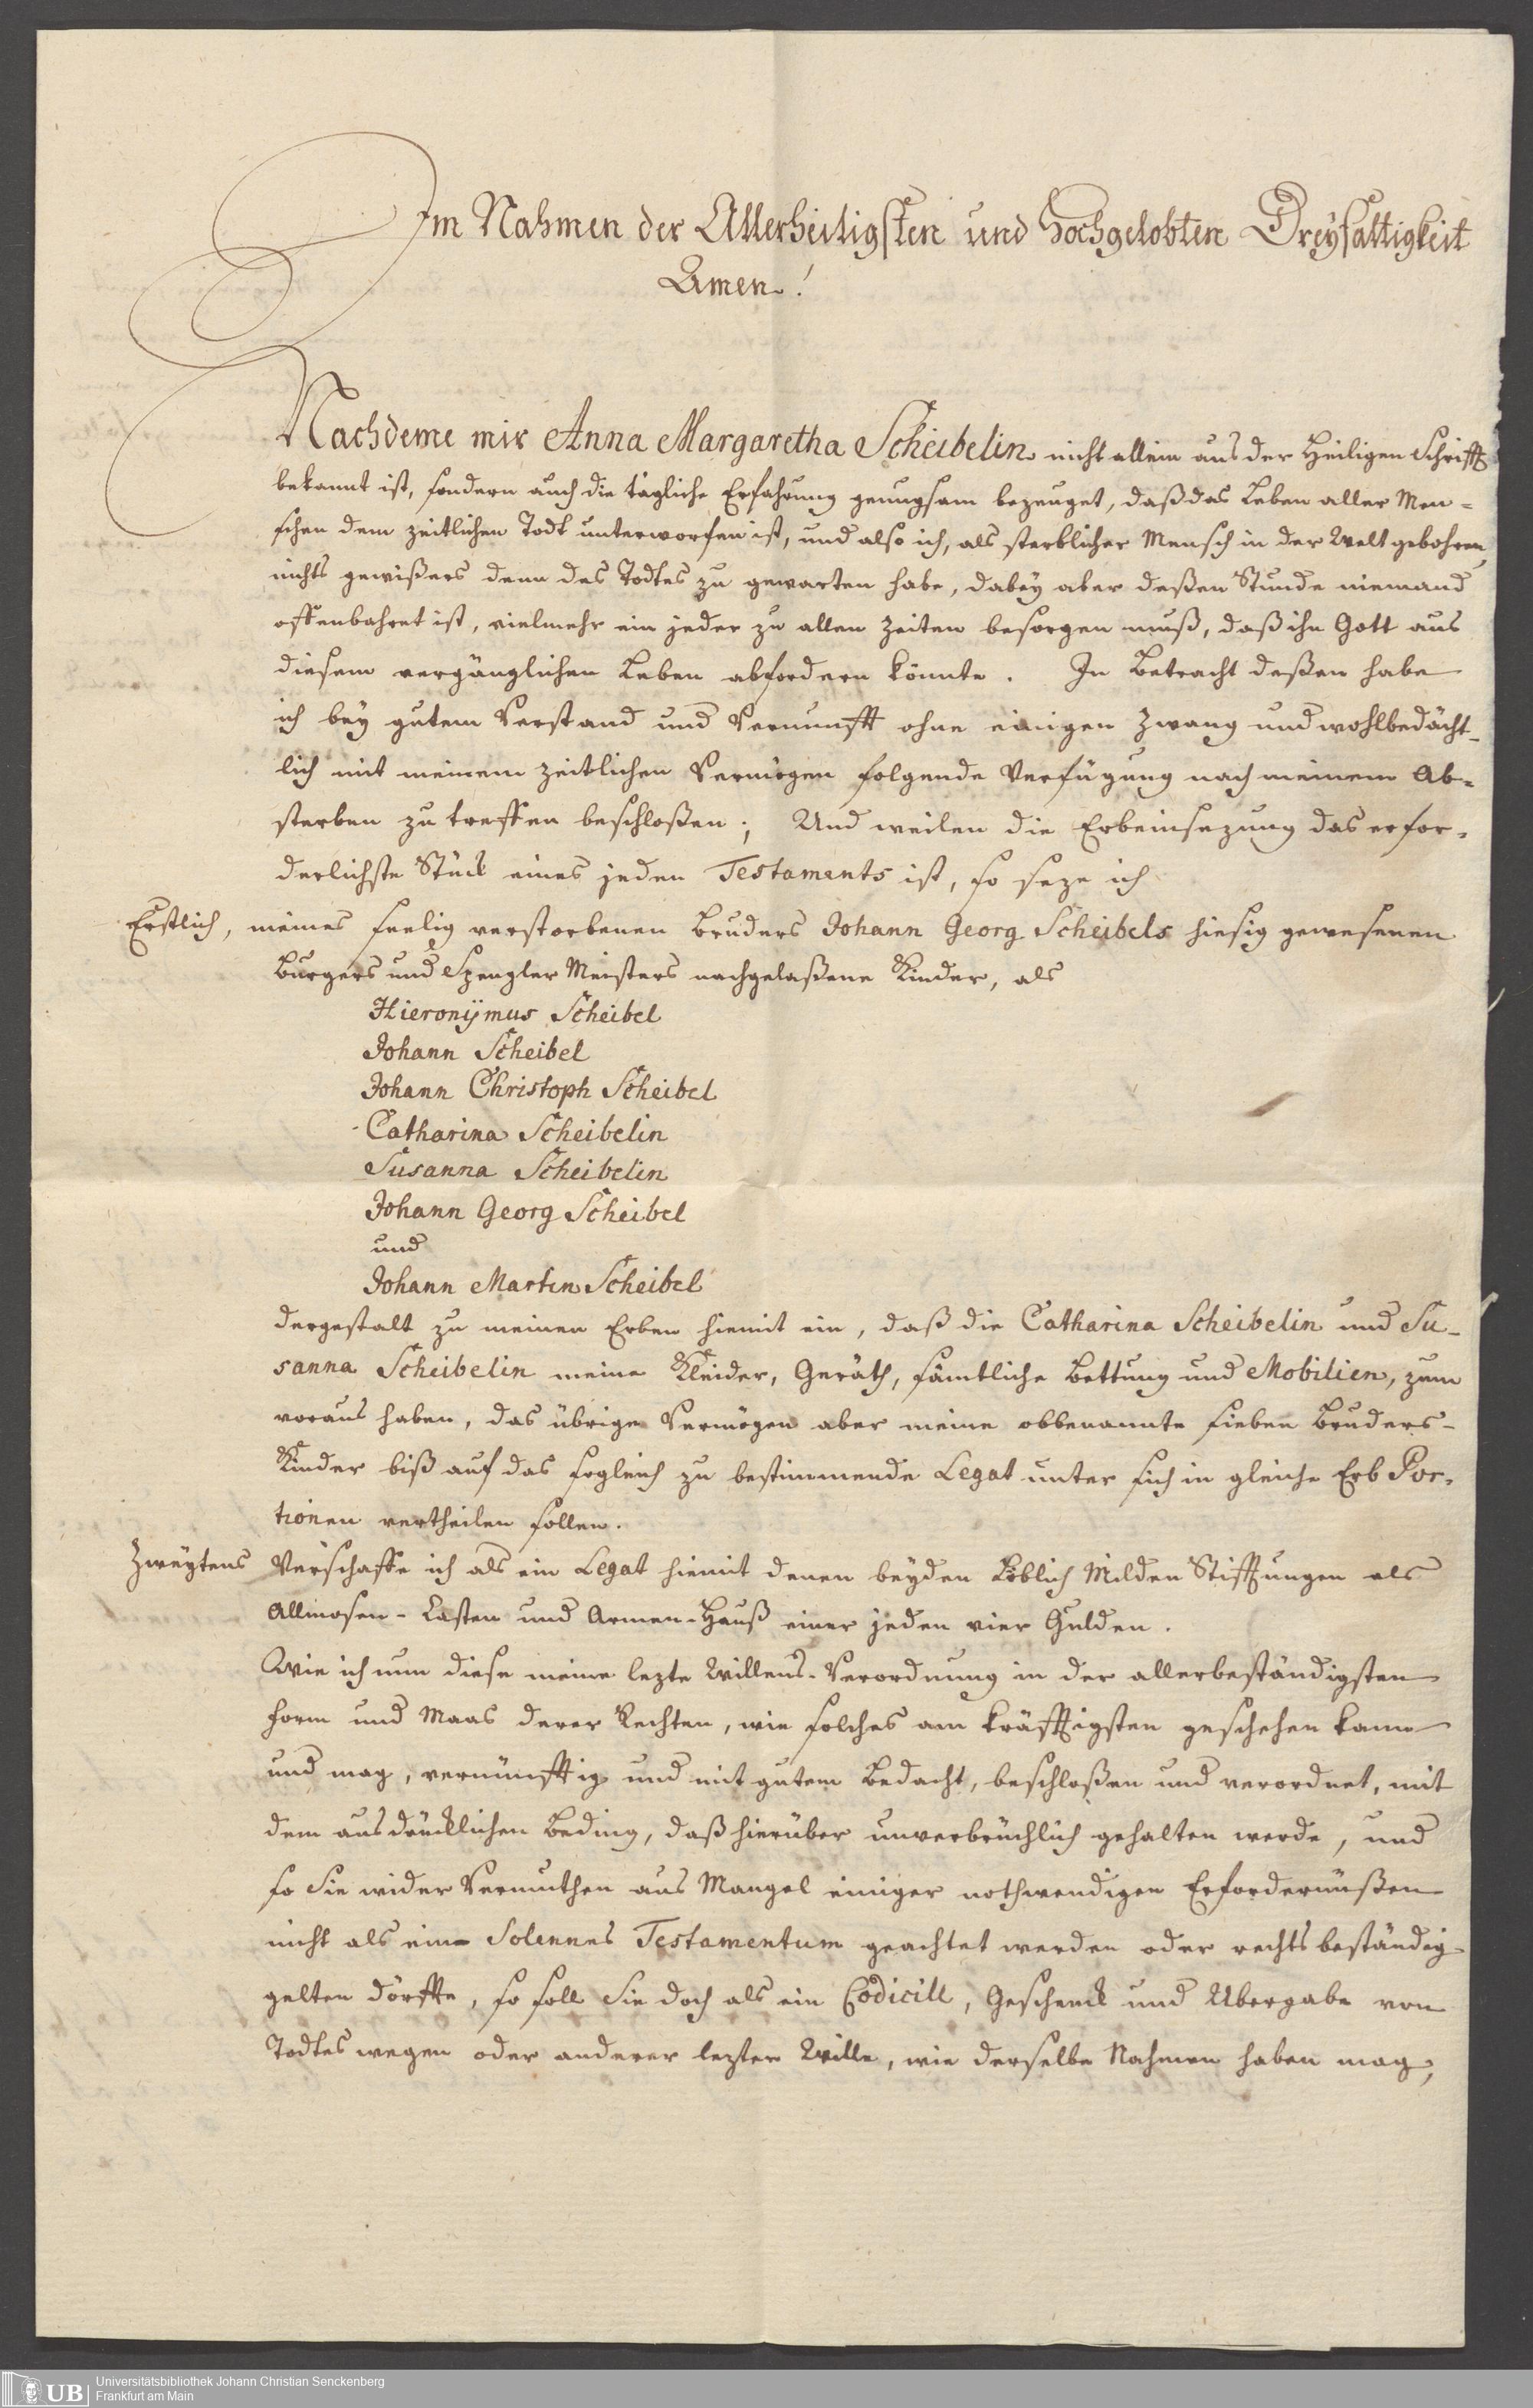 Im Nahmen der Allerheiligsten und Hochgelobten Dreyfaltigkeit
Amen!
Nachdeme mir Anna Margaretha Scheibelin nicht allein aus der Heiligen Schrifft
bekannt ist, sondern auch die tägliche Erfahrung genugsam bezeuget, daß das Leben aller Men=
schen dem zeitlichen Todt unterworfen ist, und also ich, als sterblicher Mensch in der Welt gebohren,
nichts gewißers denn des Todtes zu gewarten habe, dabey aber deßen Stunde niemand
offenbahret ist, vielmehr ein jeder zu allen Zeiten besorgen muß, daß ihn Gott aus
diesem vergänglichen Leben abfordern könnte. In Betracht deßen habe
ich bey gutem Verstand und Vernunfft ohne einigen Zwang und wohlbedächt=
lich mit meinem zeitlichen Vermögen folgende Verfügung nach meinem Ab=
sterben zu treffen beschloßen; Und weilen die Erbeinsezung das erfor=
derlichste Stück eines jeden Testaments ist, so seze ich
Erstlich, meines seelig verstorbenen Bruders Johann Georg Scheibels hiesig gewesenen
Burgers und Spengler Meisters nachgelaßene Kinder, als
Hieronÿmus Scheibel
Johann Scheibel
Johann Christoph Scheibel
Catharina Scheibelin
Susanna Scheibelin
Johann Georg Scheibel
und
Johann Martin Scheibel
dergestalt zu meinen Erben hiemit ein, daß die Catharina Scheibelin und Su=
sanna Scheibelin meine Kleider, Geräth, sämtliche Bettung und Mobilien, zum
voraus haben, das übrige Vermögen aber meine obbenannte sieben Bruders=
Kinder biß auf das sogleich zu bestimmende Legat unter sich in gleiche Erb Por=
tionen vertheilen sollen.
Zweytens Verschaffe ich als ein Legat hiemit denen beyden Löblich Milden Stifftungen als
Allmosen-Casten und Armen-Hauß einer jeden vier Gulden.
Wie ich nun diese meine lezte Willens-Verordnung in der allerbeständigsten
Form und Maas derer Rechten, wie solches am kräfftigsten geschehen kann
und mag, vernünfftig und mit gutem Bedacht, beschloßen und verordnet, mit
dem ausdrücklichen Beding, daß hierüber unverbrüchlich gehalten werde, und
so Sie wider Vermuthen aus Mangel einiger nothwendigen Erfordernüßen
nicht als ein Solennes Testamentum geachtet werden oder rechtsbeständig
gelten dörffte, so soll Sie doch als ein Codicill, Geschenck und Ubergabe von
Todtes wegen oder anderer lezter Wille, wie derselbe Nahmen haben mag,
UB
Universitätsbibliothek Johann Christian Senckenberg
Frankfurt am Main